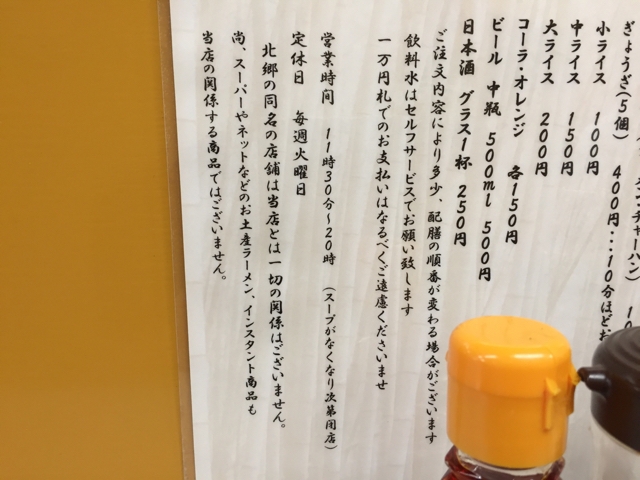 ぎょうざ(5個) 400円…10分ほどお
小ライス 100円
中ライス 150円
大ライス 200円
コーラ・オレンジ 各150円
ビール 中瓶 500ml 500円
日本酒 グラス1杯 250円
ご注文内容により多少、配膳の順番が変わる場合がございます
飲料水はセルフサービスでお願い致します
一万円札でのお支払いはなるべくご遠慮くださいませ
営業時間 11時30分~20時 (スープがなくなり次第閉店)
定休日 毎週火曜日
北郷の同名の店舗は当店とは一切の関係はございません。
尚、スーパーやネットなどのお土産ラーメン、インスタント商品も
当店の関係する商品ではございません。